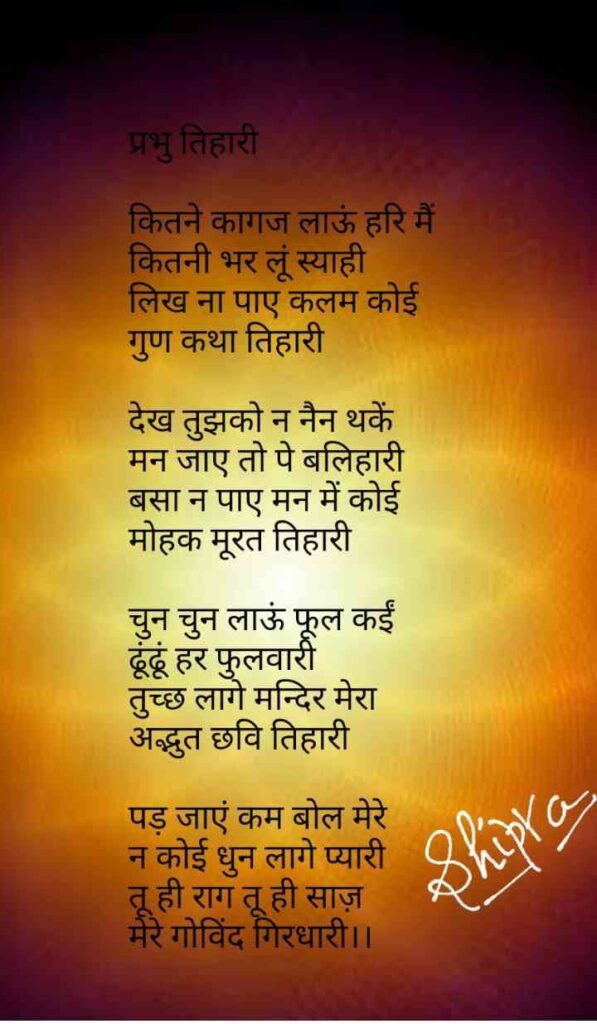 प्रभु तिहारी
कितने कागज लाऊं हरि मैं
कितनी भर लूं स्याही
लिख ना पाए कलम कोई
गुण कथा तिहारी
देख तुझको न नैन थकें
मन जाए तो पे बलिहारी
बसा न पाए मन में कोई
मोहक मूरत तिहारी
चुन चुन लाऊं फूल कईं
ढूंढूं हर फुलवारी
तुच्छ लागे मन्दिर मेरा
अद्भुत छवि तिहारी
पड़ जाएं कम बोल मेरे
न कोई धुन लागे प्यारी
तू ही राग तू ही साज़
मेरे गोविंद गिरधारी।।
Shipra